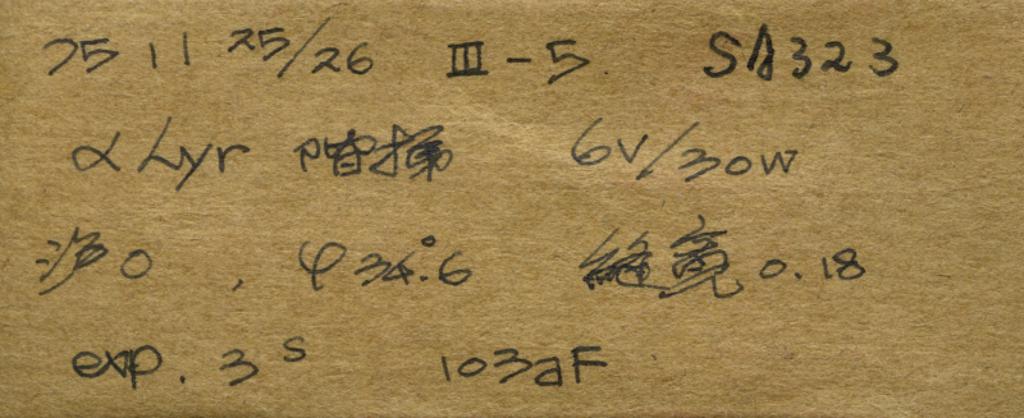 75 11 25/26 III-5 SA323
α Lyr 階梯 6V/30W
沪0 , φ34°.6 縫寬 0.18
exp. 3s 103aF